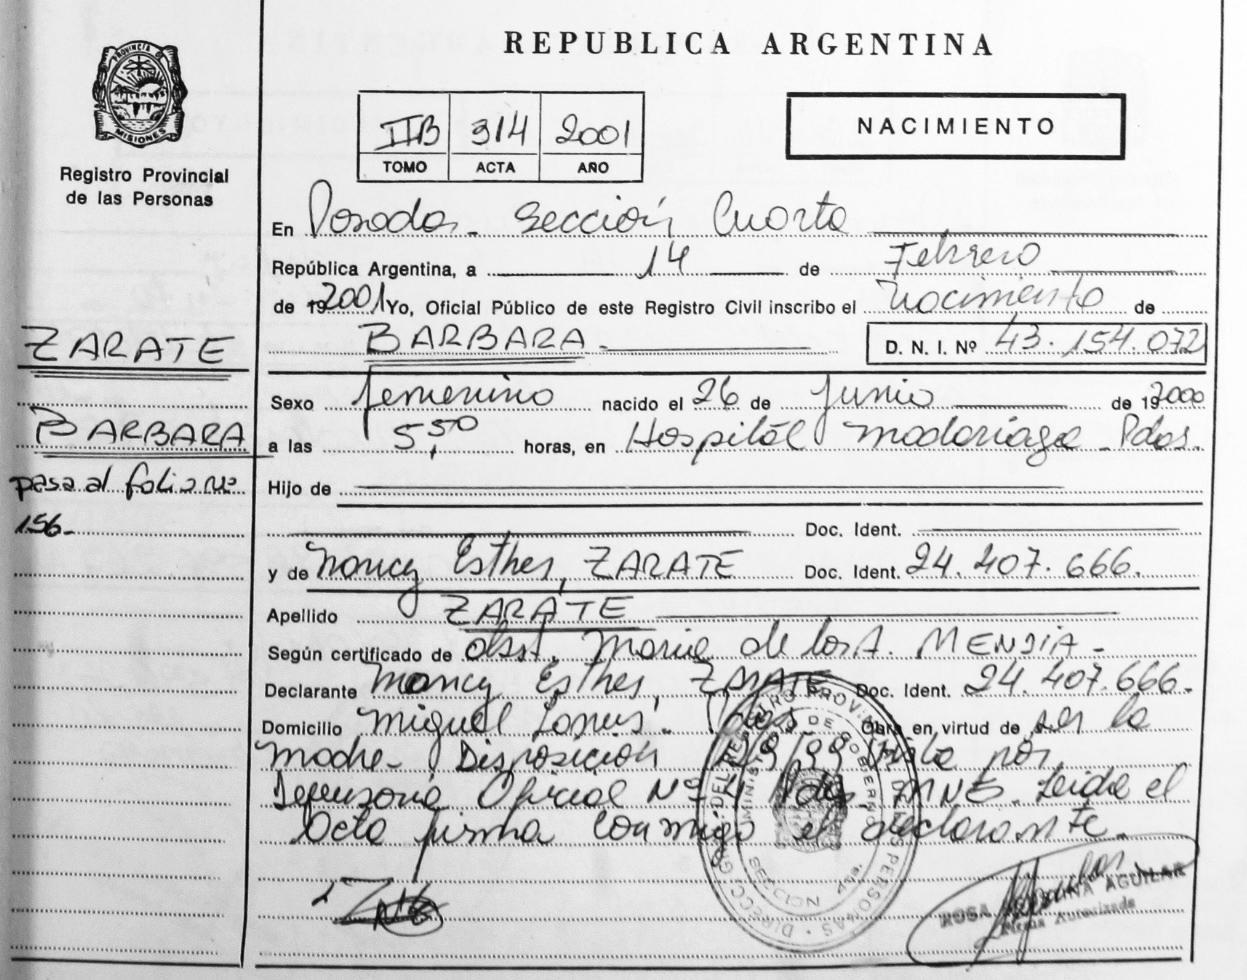 PROVINCIA D MISIONES
Registro Provincial
de las Personas
REPUBLICA ARGENTINA
IIB 314 2001
TOMO ACTA AÑO
NACIMIENTO
En Posadas - Sección Cuarta
República Argentina, a 14 de Febrero
de 192001 Yo, Oficial Público de este Registro Civil inscribo el Nacimiento de
ZARATE
BARBARA
BARBARA - D. N. I. Nº 43.154.072
Sexo femenino nacido el 26 de Junio de 192000
a las 5,50 horas, en Hospital Madariaga - Pdas.
pasa al folio nº
156-
Hijo de
Doc. Ident.
y de Nancy Esther, ZARATE Doc. Ident. 24.407.666.
Apellido ZARATE
Según certificado de obst. Maria de los A. MENJIA -
Declarante Nancy Esther, ZARATE Doc. Ident. 24.407.666-
Domicilio Miguel Lanús. Pdas Obra en virtud de ser la
madre - Disposición por
Defensoria Oficial Nº 4 Pdas. MNES. Leida el
Acta firma conmigo el declarante.
ROSA AGUILAR
Firma Autorizada